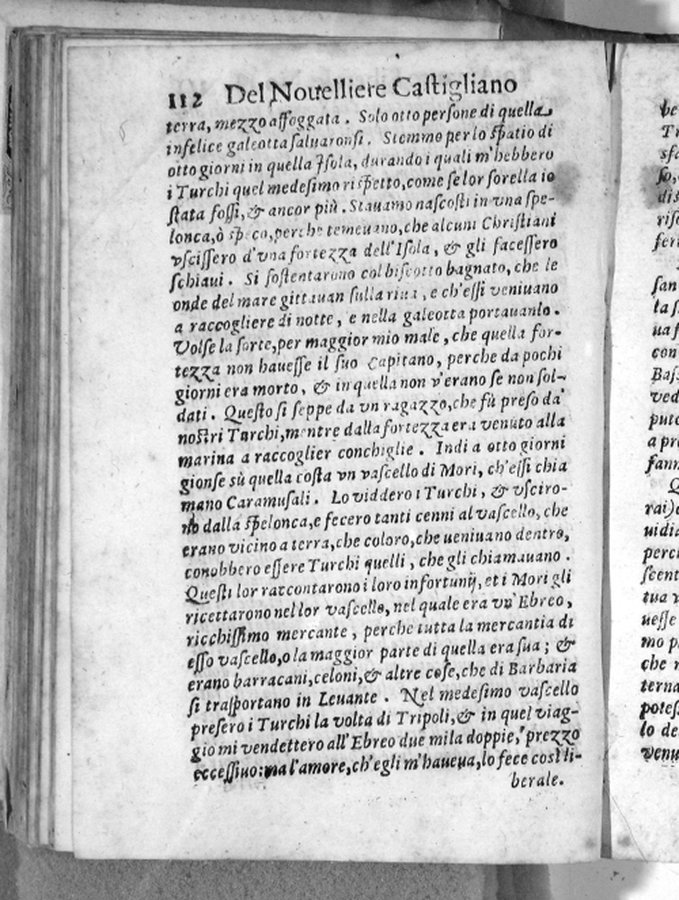 112 Del Nouelliere Castigliano
terra, mezzo affoggata. Solo otto persone di quella
infelice galeotta saluaronsi. Stemmo per lo spatio di
otto giorni in quella Isola, durando i quali m'hebbero
i Turchi quel medesimo rispetto, come se lor sorella io
stata fossi, & ancor più. Stauamo nascosti in vna spe-
lonca, ò speco, perche temeuano, che alcuni Christiani
vscissero d'vna fortezza dell'Isola, & gli facessero
schiaui. Si sostentarono col biscotto bagnato, che le
onde del mare gittauan sulla riua, e ch'essi veniuano
a raccogliere di notte, e nella galeotta portauanlo.
Volse la sorte, per maggior mio male, che quella for-
tezza non hauesse il suo Capitano, perche da pochi
giorni era morto, & in quella non v'erano se non sol-
dati. Questo si seppe da vn ragazzo, che fù preso da'
nostri Turchi, mentre dalla fortezza era venuto alla
marina a raccoglier conchiglie. Indi a otto giorni
gionse sù quella costa vn vascello di Mori, ch'essi chia
mano Caramusali. Lo viddero i Turchi, & vsciro-
no dalla spelonca, e fecero tanti cenni al vascello, che
erano vicino a terra, che coloro, che ueniuano dentro,
conobbero essere Turchi quelli, che gli chiamauano.
Questi lor raccontarono i loro infortunij, et i Mori gli
ricettarono nel lor vascello, nel quale era vn'Ebreo,
ricchissimo mercante, perche tutta la mercantia di
esso vascello, o la maggior parte di quella era sua; &
erano barracani, celoni, & altre cose, che di Barbaria
si trasportano in Leuante. Nel medesimo vascello
presero i Turchi la volta di Tripoli, & in quel viag-
gio mi vendettero all'Ebreo due mila doppie, prezzo
eccessiuo: ma l'amore, ch'egli m'haueua, lo fece così li-
berale.